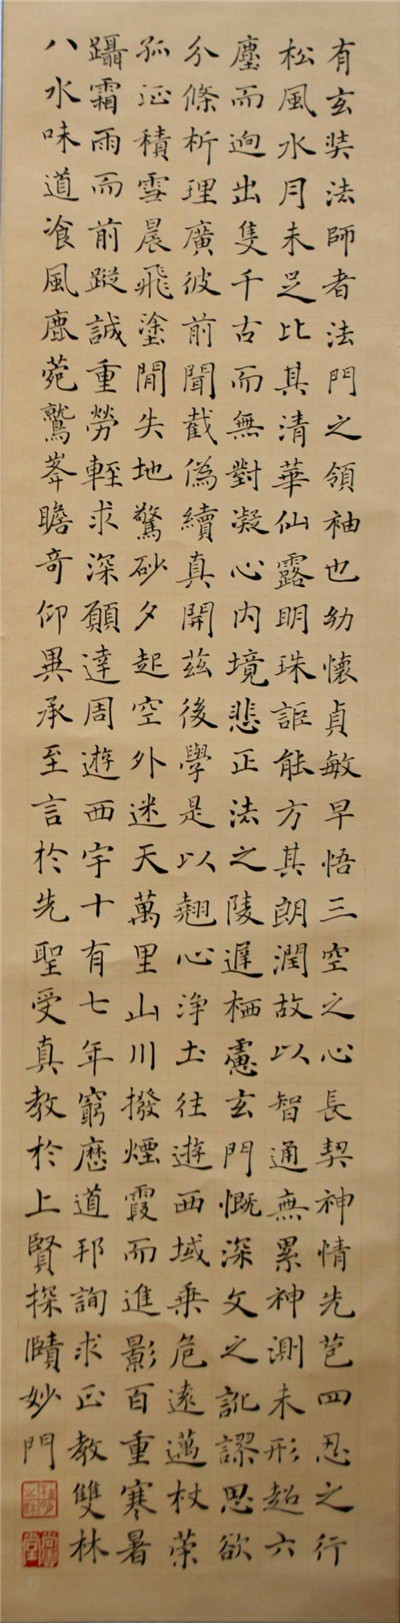 有玄奘法師者法門之領袖也幼懷貞敏早悟三空之心長契神情先苞四忍之行
松風水月未足比其清華仙露明珠詎能方其朗潤故以智通無累神測未形超六
塵而迥出隻千古而無對凝心內境悲正法之陵遲栖慮玄門慨深文之訛謬思欲
分條析理廣彼前聞截偽續真開茲後學是以翹心淨土往遊西域乗危遠邁杖策
孤征積雪晨飛塗閒失地驚砂夕起空外迷天萬里山川撥煙霞而進影百重寒暑
躡霜雨而前蹤誠重勞輕求深願達周遊西宇十有七年窮歷道邦詢求正教雙林
八水味道飡風鹿菀鷲峯瞻奇仰異承至言於先聖受真教於上賢探賾妙門